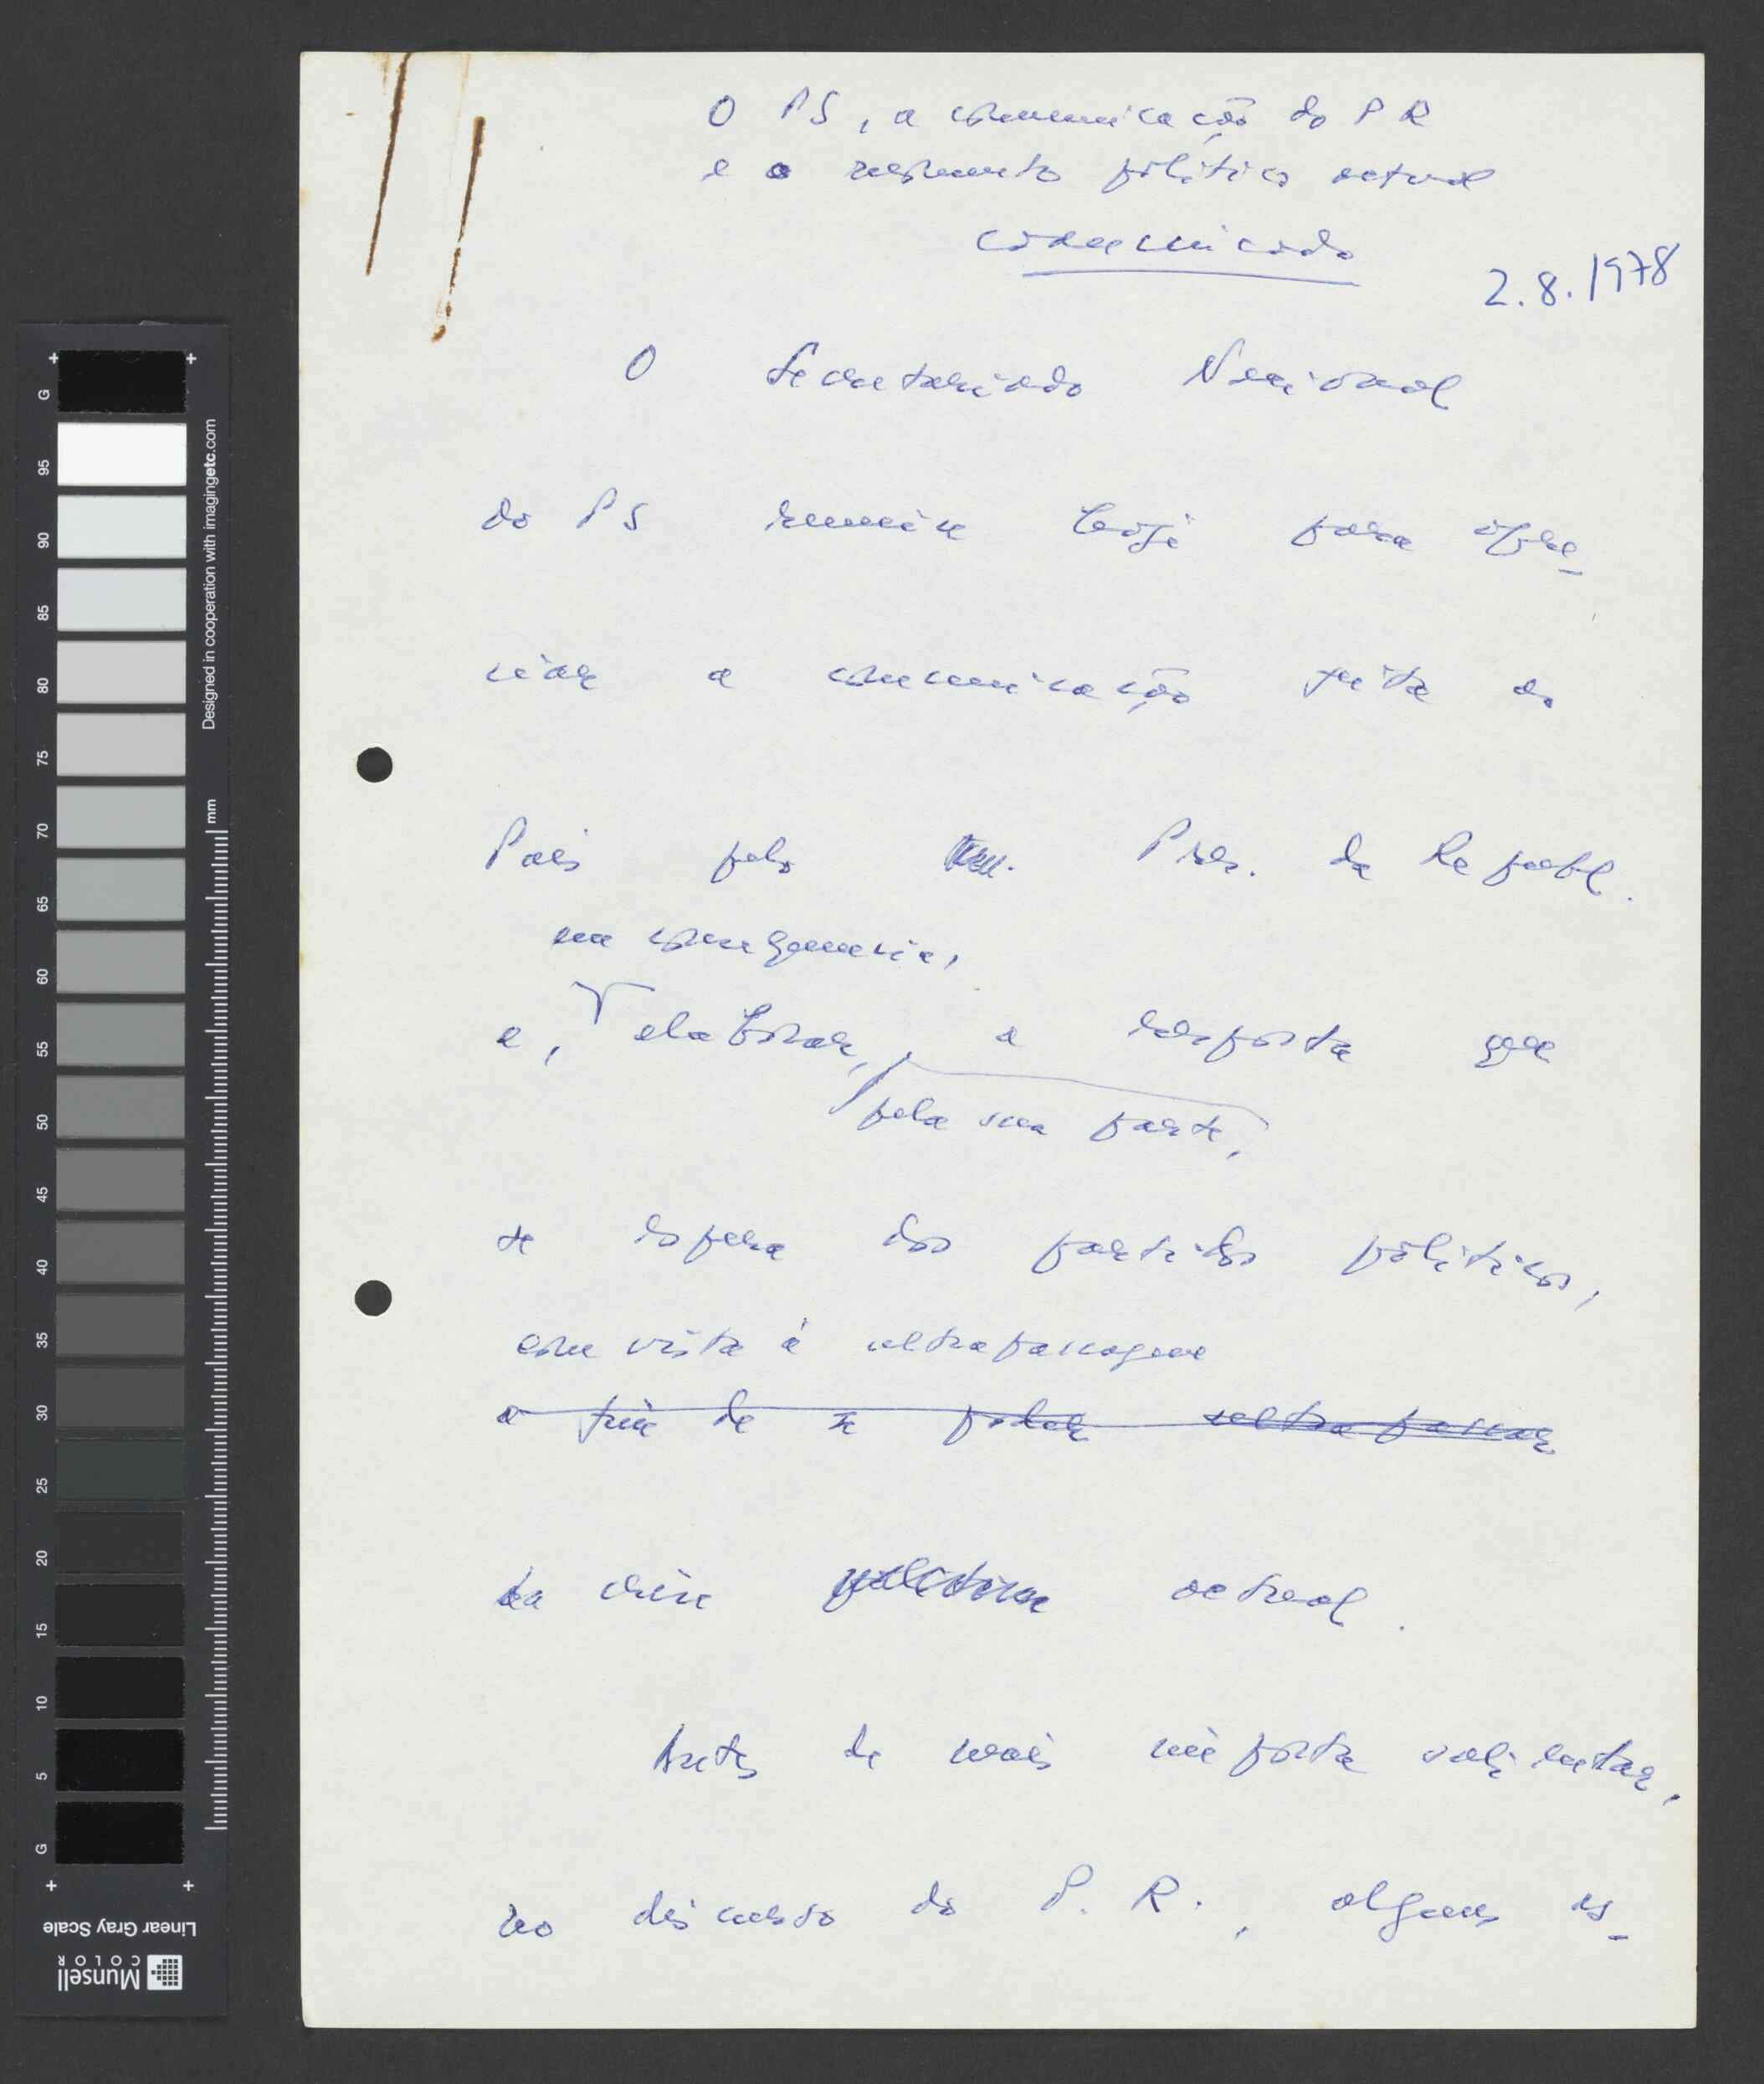 O PS, a comunicação do PR
e o momento político actual
comunicado
2.8.1978
O Secretariado Nacional
do PS reuniu hoje para apre-
ciar a comunicação feita ao
País pelo Pres. da Republ.
na consequencia,
e, elaborar, a resposta que
pela sua parte,
se espera dos partidos politicos,
com vista à ultrapassagem
a fim de se poder ultrapassar
da crise politica actual.
Antes de mais importa salientar,
no discurso do P. R., alguns as-
G
95
90
85
80
75
70
65
60
55
50
45
40
35
30
25
20
15
10
5
G
Designed in cooperation with imagingetc.com
mm
Linear Gray Scale
Munsell
COLOR